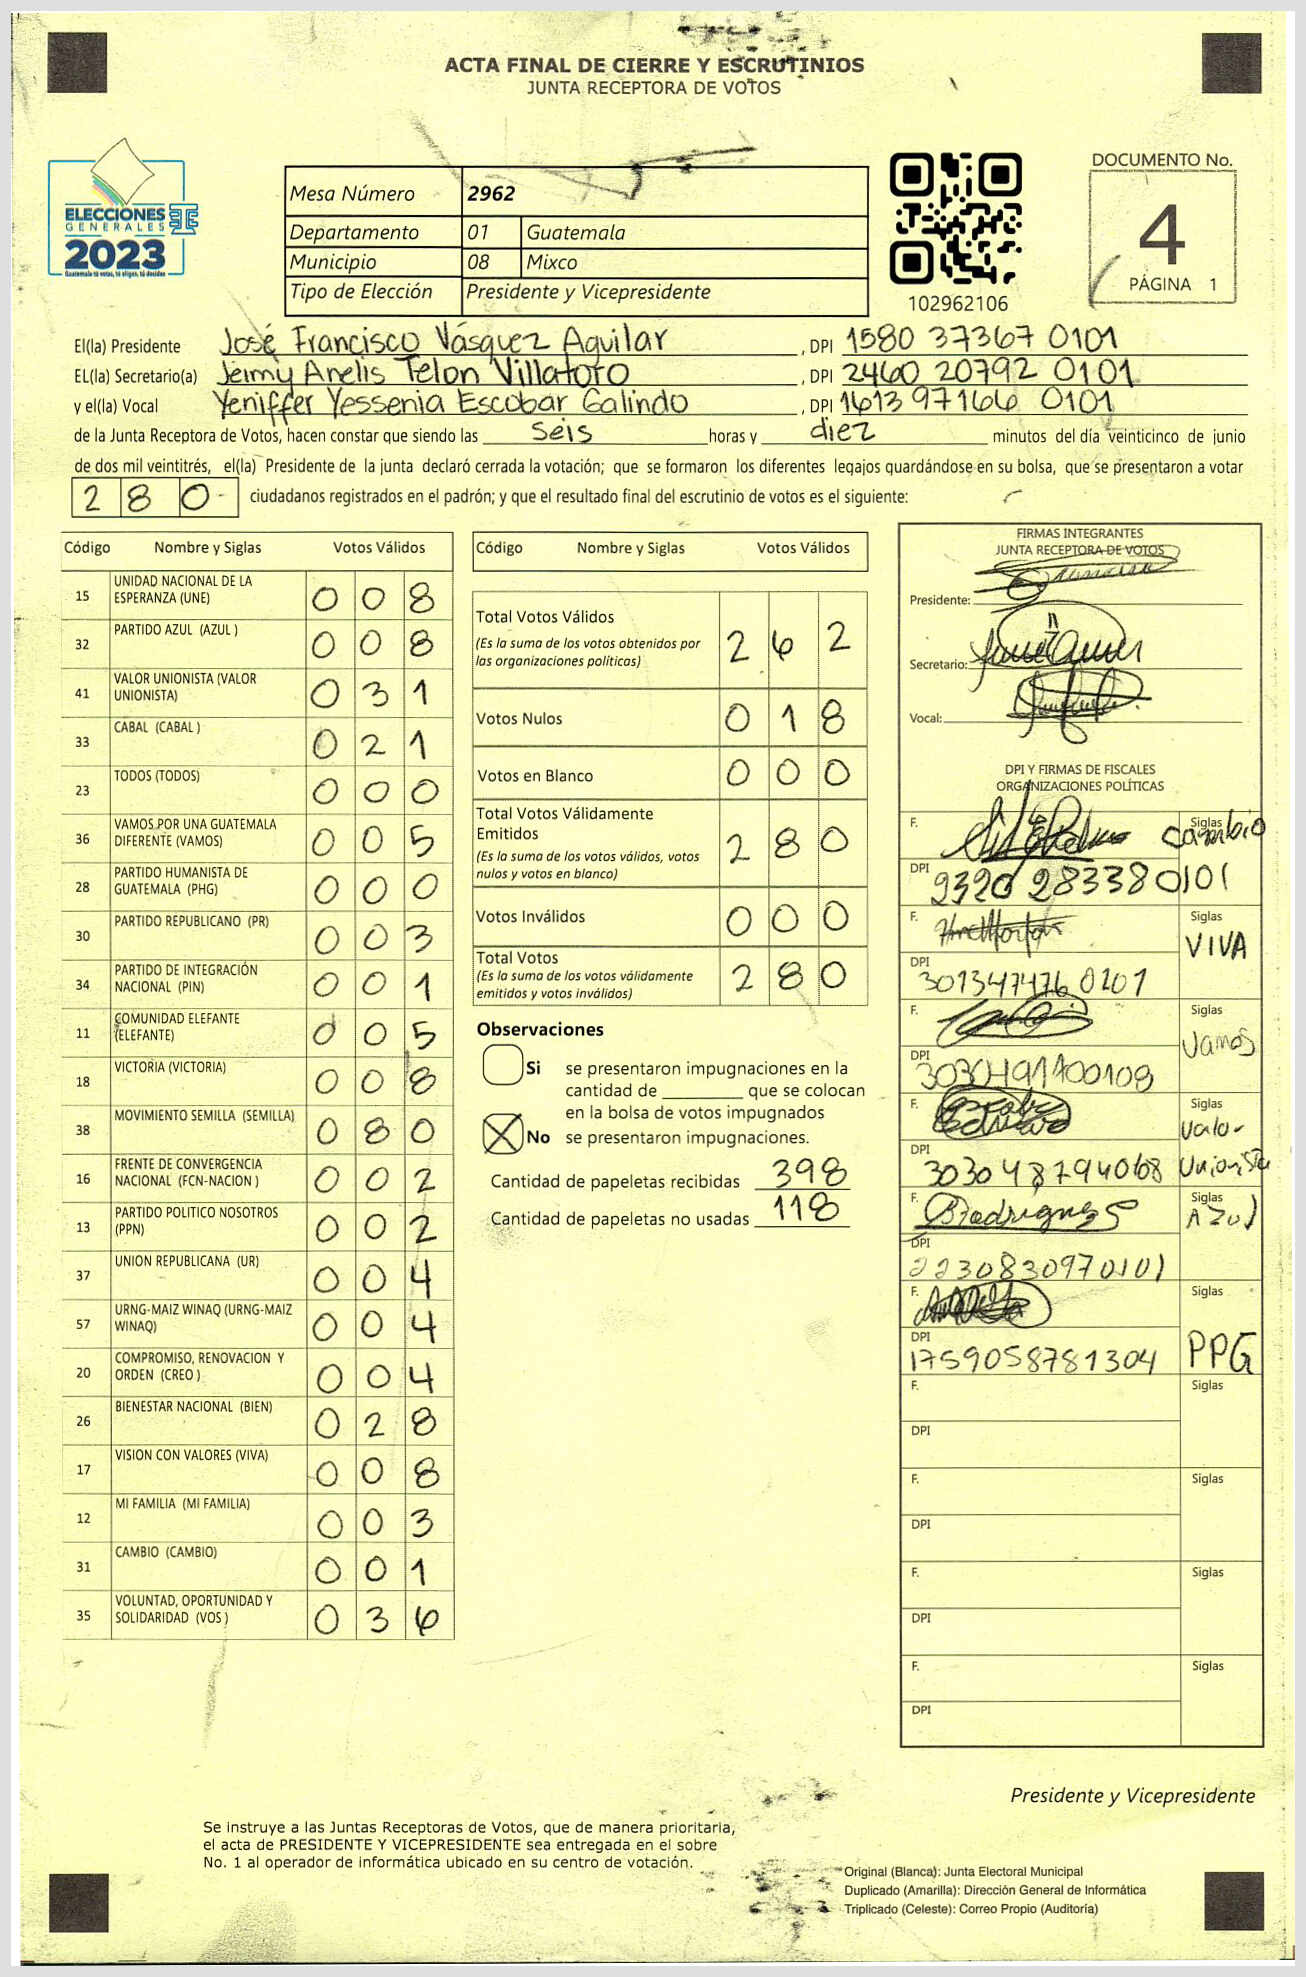 ACTA FINAL DE CIERRE Y ESCRUTINIOS
JUNTA RECEPTORA DE VOTOS
ELECCIONES
GENERALES
2023
Guatemala tú votas, tú eliges, tú decides
Mesa Número 2962
Departamento 01 Guatemala
Municipio 08 Mixco
Tipo de Elección Presidente y Vicepresidente
102962106
DOCUMENTO No.
4
PÁGINA 1
El(la) Presidente José Francisco Vásquez Aguilar , DPI 1580 37367 0101
EL(la) Secretario(a) Jeimy Anelis Telon Villatoro , DPI 2460 20792 0101
y el(la) Vocal Yeniffer Yessenia Escobar Galindo , DPI 1613 97166 0101
de la Junta Receptora de Votos, hacen constar que siendo las seis horas y diez minutos del día veinticinco de junio
de dos mil veintitrés, el(la) Presidente de la junta declaró cerrada la votación; que se formaron los diferentes legajos guardándose en su bolsa, que se presentaron a votar
280 ciudadanos registrados en el padrón; y que el resultado final del escrutinio de votos es el siguiente:
Código Nombre y Siglas Votos Válidos
15 UNIDAD NACIONAL DE LA ESPERANZA (UNE) 0 0 8
32 PARTIDO AZUL (AZUL ) 0 0 8
41 VALOR UNIONISTA (VALOR UNIONISTA) 0 3 1
33 CABAL (CABAL ) 0 2 1
23 TODOS (TODOS) 0 0 0
36 VAMOS POR UNA GUATEMALA DIFERENTE (VAMOS) 0 0 5
28 PARTIDO HUMANISTA DE GUATEMALA (PHG) 0 0 0
30 PARTIDO REPUBLICANO (PR) 0 0 3
34 PARTIDO DE INTEGRACIÓN NACIONAL (PIN) 0 0 1
11 COMUNIDAD ELEFANTE (ELEFANTE) 0 0 5
18 VICTORIA (VICTORIA) 0 0 8
38 MOVIMIENTO SEMILLA (SEMILLA) 0 8 0
16 FRENTE DE CONVERGENCIA NACIONAL (FCN-NACION ) 0 0 2
13 PARTIDO POLITICO NOSOTROS (PPN) 0 0 2
37 UNION REPUBLICANA (UR) 0 0 4
57 URNG-MAIZ WINAQ (URNG-MAIZ WINAQ) 0 0 4
20 COMPROMISO, RENOVACION Y ORDEN (CREO ) 0 0 4
26 BIENESTAR NACIONAL (BIEN) 0 2 8
17 VISION CON VALORES (VIVA) 0 0 8
12 MI FAMILIA (MI FAMILIA) 0 0 3
31 CAMBIO (CAMBIO) 0 0 1
35 VOLUNTAD, OPORTUNIDAD Y SOLIDARIDAD (VOS ) 0 3 6
Código Nombre y Siglas Votos Válidos
Total Votos Válidos 2 6 2
(Es la suma de los votos obtenidos por
las organizaciones políticas)
Votos Nulos 0 1 8
Votos en Blanco 0 0 0
Total Votos Válidamente
Emitidos 2 8 0
(Es la suma de los votos válidos, votos
nulos y votos en blanco)
Votos Inválidos 0 0 0
Total Votos 2 8 0
(Es la suma de los votos válidamente
emitidos y votos inválidos)
Observaciones
Si se presentaron impugnaciones en la
cantidad de ________ que se colocan
en la bolsa de votos impugnados
No se presentaron impugnaciones.
Cantidad de papeletas recibidas 398
Cantidad de papeletas no usadas 118
FIRMAS INTEGRANTES
JUNTA RECEPTORA DE VOTOS
Presidente:
Secretario:
Vocal:
DPI Y FIRMAS DE FISCALES
ORGANIZACIONES POLÍTICAS
F. Siglas Cambio
DPI 2320 28338 0101
F. Siglas VIVA
DPI 301347476 0101
F. Siglas Vamos
DPI 3030491700108
F. Siglas Valor Unionista
DPI 3030 48794 0108
F. Rodriguez Siglas Azul
DPI 2230830970101
F. Siglas PPG
DPI 1759058781304
F. Siglas
DPI
F. Siglas
DPI
F. Siglas
DPI
F. Siglas
DPI
Presidente y Vicepresidente
Se instruye a las Juntas Receptoras de Votos, que de manera prioritaria,
el acta de PRESIDENTE Y VICEPRESIDENTE sea entregada en el sobre
No. 1 al operador de informática ubicado en su centro de votación.
Original (Blanca): Junta Electoral Municipal
Duplicado (Amarilla): Dirección General de Informática
Triplicado (Celeste): Correo Propio (Auditoría)